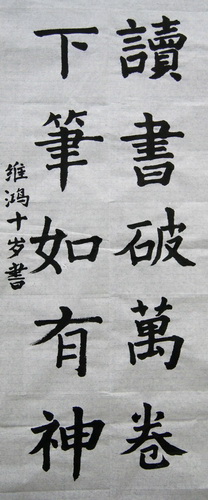 讀書破萬卷
下筆如有神
维鴻十岁書